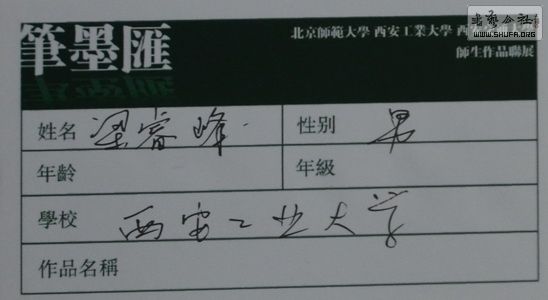 筆墨匯
北京師範大學 西安工業大學 西
師生作品聯展
書藝公社
WWW.SHUFA.ORG
姓名 梁睿峰 性别 男
年齡 年級
學校 西安工业大学
作品名稱